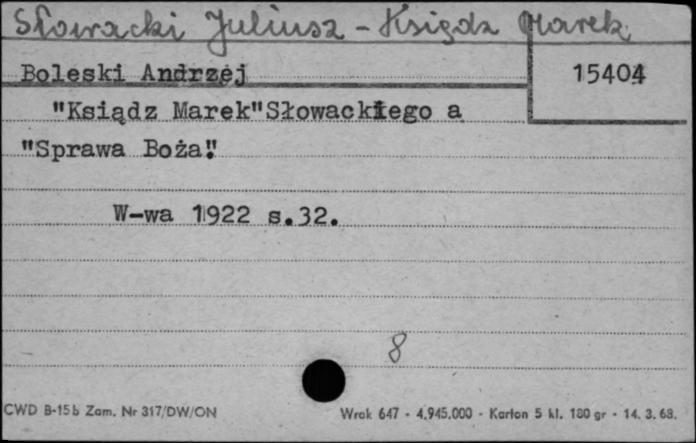 Słowacki Juliusz - Ksiądz Marek.
Boleski Andrzej
15404
"Ksiądz Marek" Słowackiego a
"Sprawa Boża".
W-wa 1922 s.32.
8
CWD B-15b Zam. Nr 317/DW/ON
Wrak 647 - 4.945.000 - Karton 5 kl. 180 gr - 14. 3. 68.